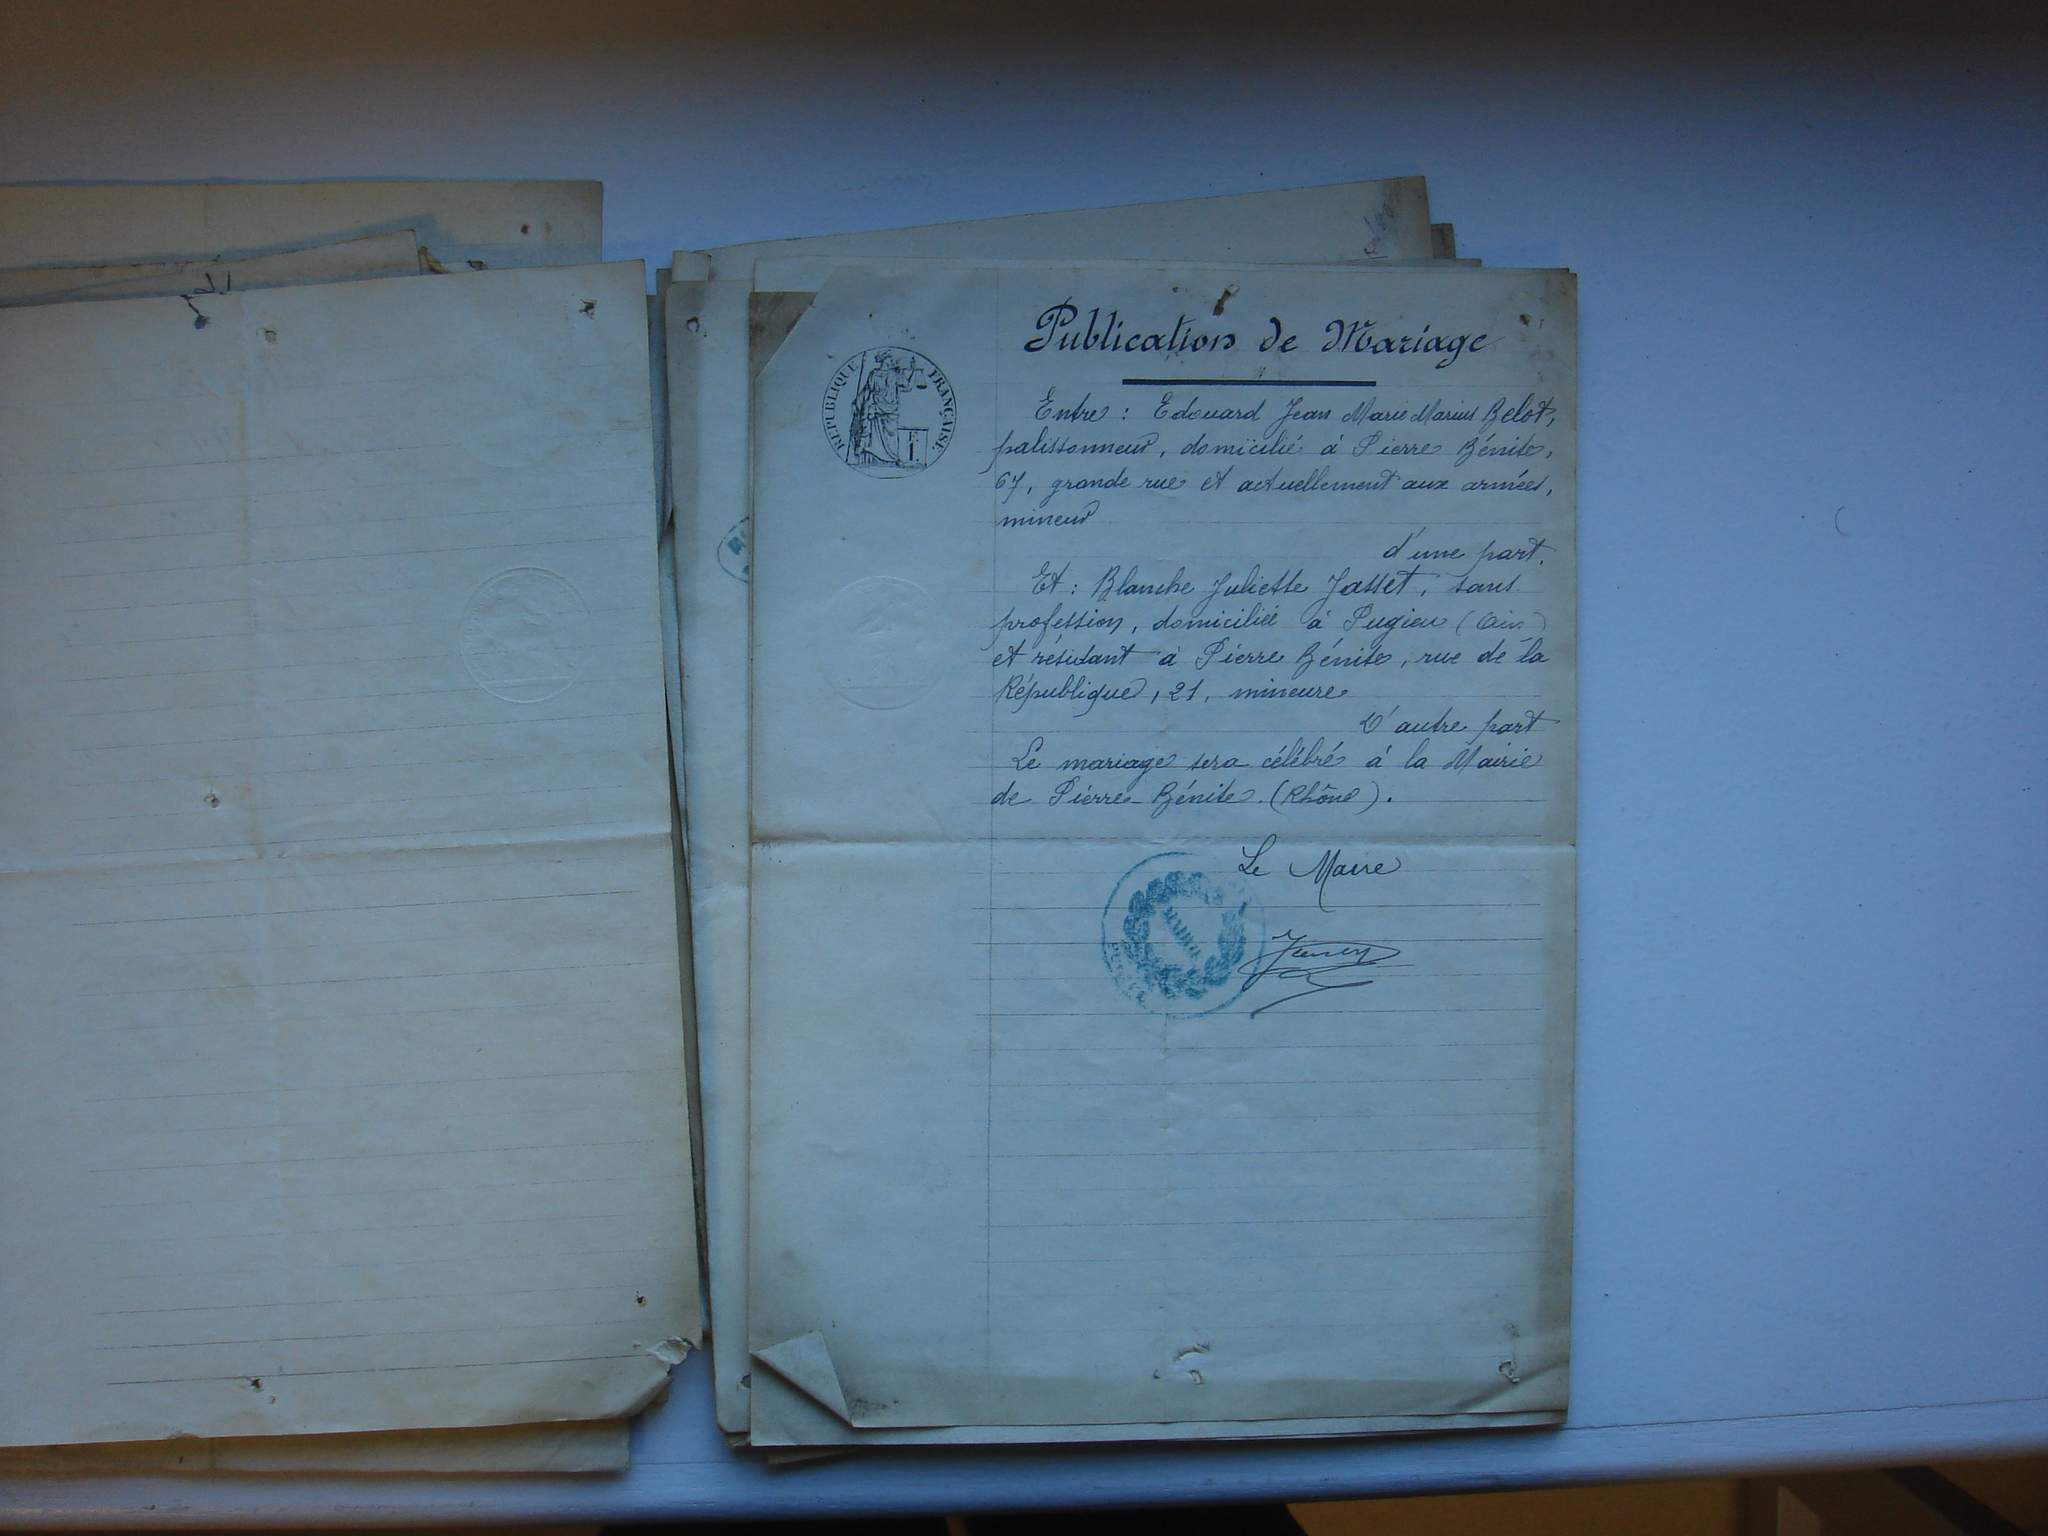 Publication de Mariage
RÉPUBLIQUE FRANÇAISE.
Entre : Edouard Jean Marie Marius Belot,
palissonneur, domicilié à Pierre Bénite,
67, grande rue et actuellement aux armées,
mineur
d'une part.
Et : Blanche Juliette Jasset, sans
profession, domiciliée à Pugieu (Ain)
et résidant à Pierre Bénite, rue de la
République, 21, mineure
D'autre part
Le mariage sera célébré à la Mairie
de Pierre-Bénite (Rhône).
Le Maire
MAIRIE